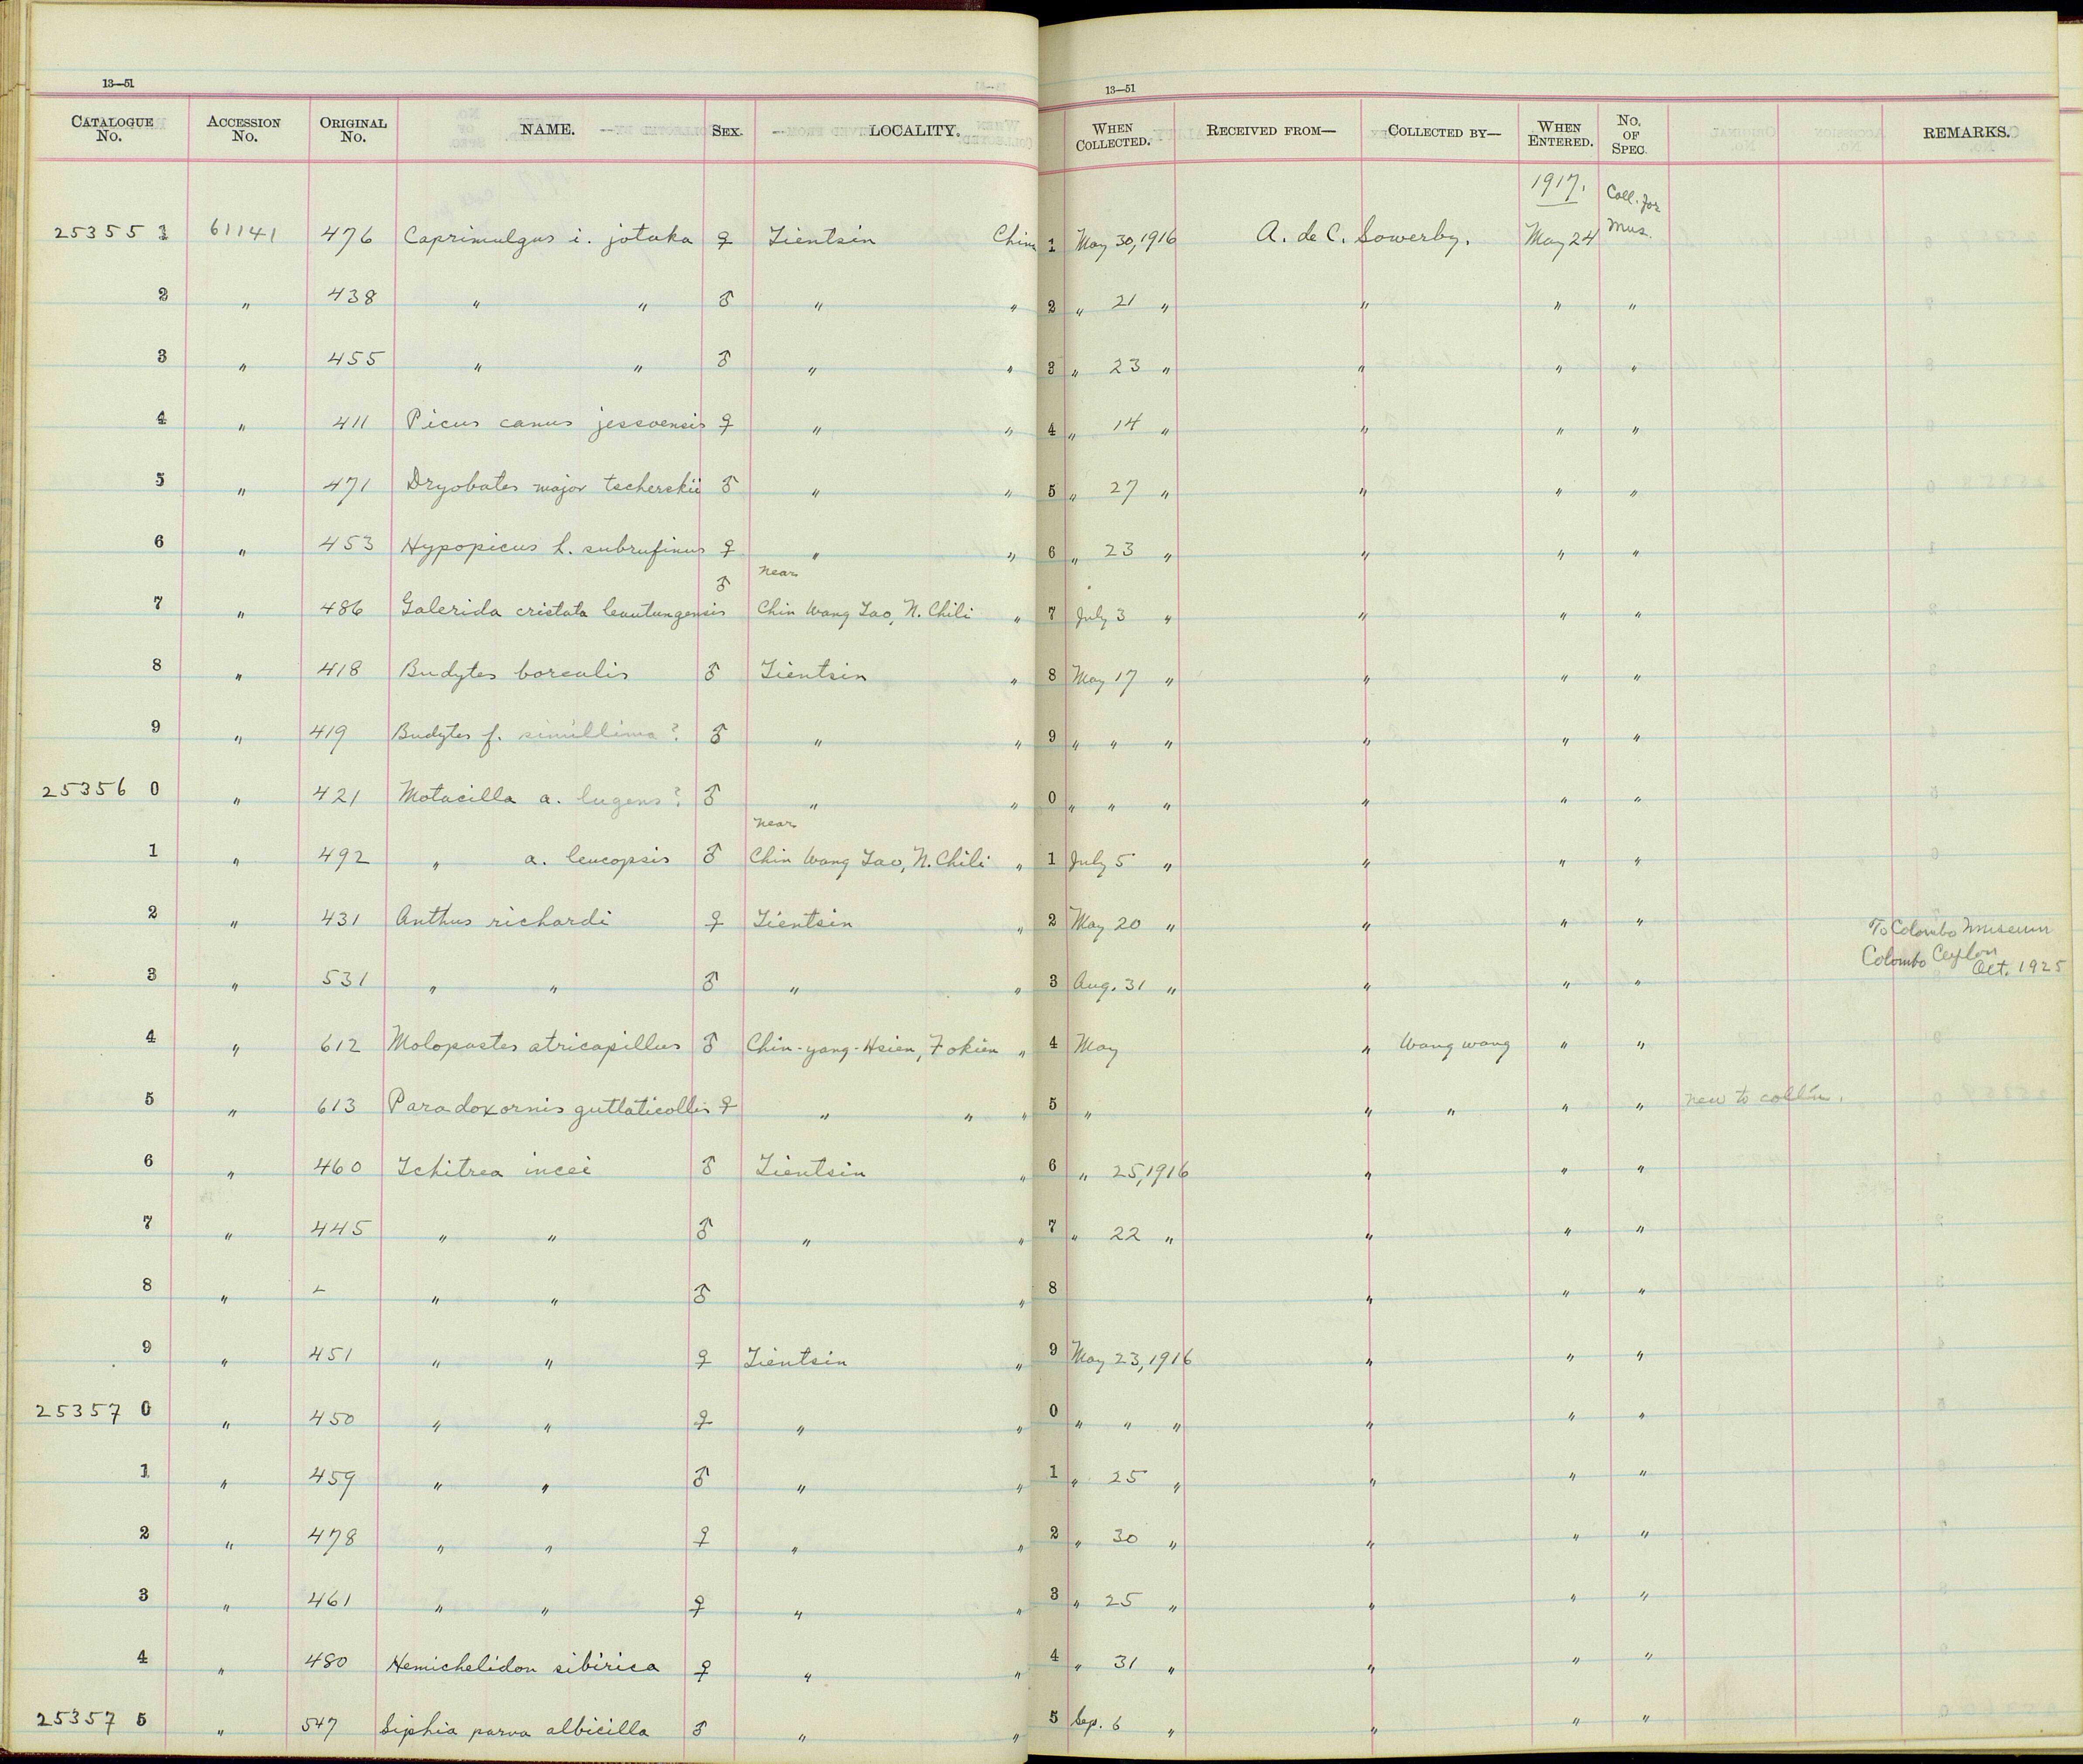 13—51
13—51
CATALOGUE No. ACCESSION No. ORIGINAL No. NAME. SEX. LOCALITY. WHEN COLLECTED. RECEIVED FROM— COLLECTED BY— WHEN ENTERED. No. OF SPEC. REMARKS.
1917. Coll. for
25355 1 61141 476 Caprimulgus i. jotaka ♀ Tientsin China 1 May 30, 1916 A. de C. Sowerby. May 24 Mus.
2 " 438 " " ♂ " " 2 " 21 " " " "
3 " 455 " " ♂ " " 3 " 23 " " " "
4 " 411 Picus canus jessoensis ♀ " " 4 " 14 " " " "
5 " 471 Dryobates major tscherskii ♂ " " 5 " 27 " " " "
6 " 453 Hypopicus h. subrufinus ♀ " " 6 " 23 " " " "
near
7 " 486 Galerida cristata leautungensis ♂ Chin Wang Tao, N. Chili " 7 July 3 " " " "
8 " 418 Budytes borealis ♂ Tientsin " 8 May 17 " " " "
9 " 419 Budytes f. simillima? ♂ " " 9 " " " " " "
25356 0 " 421 Motacilla a. lugens? ♂ " " 0 " " " " " "
near
1 " 492 " a. leucopsis ♂ Chin Wang Tao, N. Chili " 1 July 5 " " " "
2 " 431 Anthus richardi ♀ Tientsin " 2 May 20 " " " " To Colombo Museum
Colombo Ceylon
Oct. 1925
3 " 531 " " ♂ " " 3 Aug. 31 " " " "
4 " 612 Molopastes atricapillus ♂ Chin-yang-Hsien, Fokien " 4 May " Wang wang " "
5 " 613 Paradoxornis guttaticollis ♀ " " " 5 " " " " " new to coll'n.
6 " 460 Tchitrea incei ♂ Tientsin " 6 " 25, 1916 " " "
7 " 445 " " ♂ " " 7 " 22 " " " "
8 " - " " ♂ " 8 " " "
9 " 451 " " ♀ Tientsin " 9 May 23, 1916 " " "
25357 0 " 450 " " ♀ " " 0 " " " " " "
1 " 459 " " ♂ " " 1 " 25 " " " "
2 " 478 " " ♀ " " 2 " 30 " " " "
3 " 461 " " ♀ " " 3 " 25 " " " "
4 " 480 Hemichelidon sibirica ♀ " " 4 " 31 " " " "
25357 5 " 547 Siphia parva albicilla ♂ " " 5 Sep. 6 " " " "